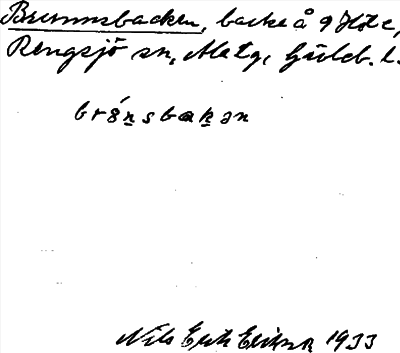 Brunnsbacken, backe å 9 Höle,
Rengsjö sn, Alstg, Gävleb. l.
brǿnsbakən
Nils Erik Eriksson 1933